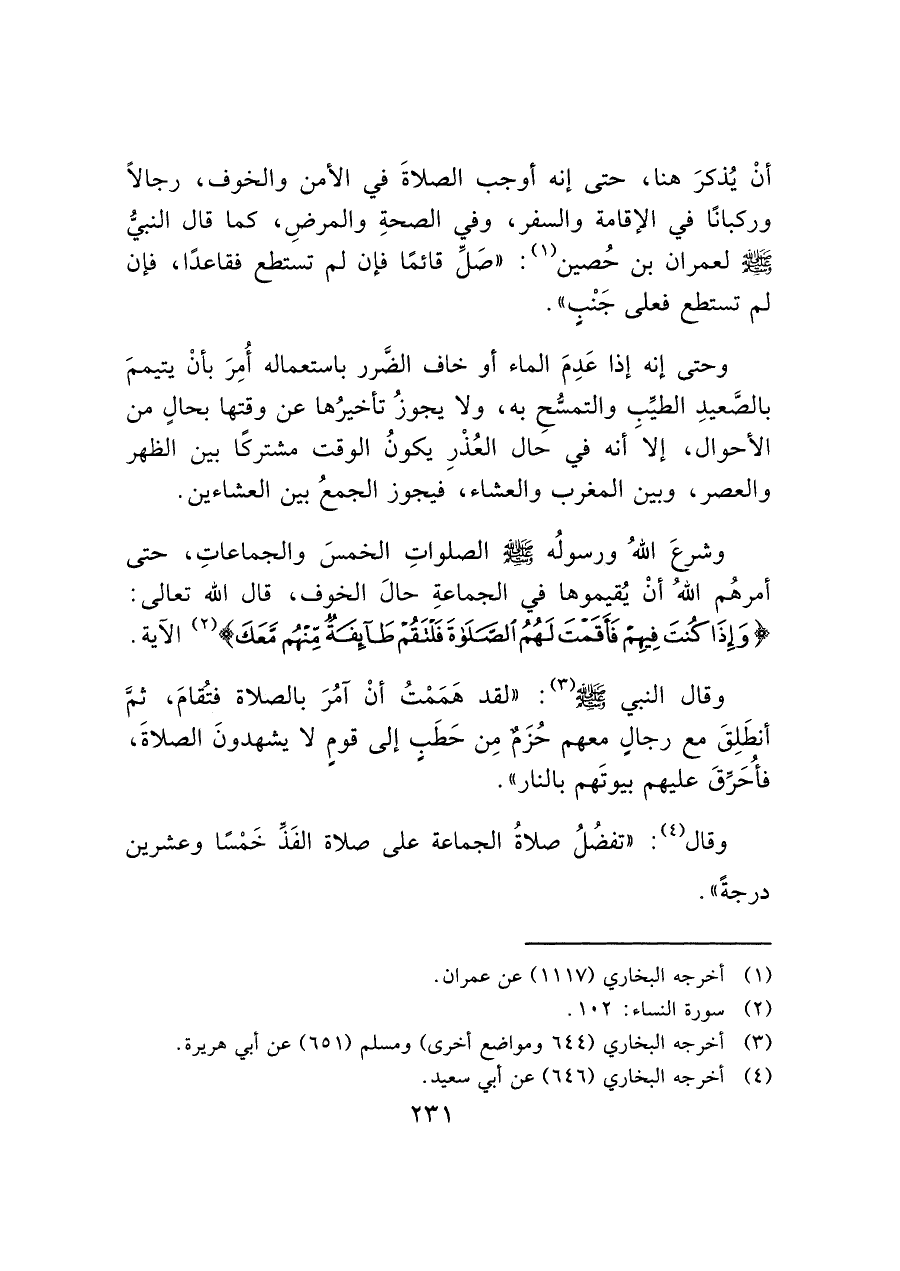 أنْ يُذكرَ هنا، حتى إنه أوجب الصلاةَ في الأمن والخوف، رجالاً
وركبانًا في الإقامة والسفر، وفي الصحةِ والمرضِ، كما قال النبيُّ
ﷺ لعمران بن حُصين(١): «صَلِّ قائمًا فإن لم تستطع فقاعدًا، فإن
لم تستطع فعلى جَنْبٍ».
وحتى إنه إذا عَدِمَ الماء أو خاف الضَّرر باستعماله أُمِرَ بأنْ يتيممَ
بالصَّعيدِ الطيِّبِ والتمسُّحِ به، ولا يجوزُ تأخيرُها عن وقتها بحالٍ من
الأحوال، إلا أنه في حال العُذْرِ يكونُ الوقت مشتركًا بين الظهر
والعصر، وبين المغرب والعشاء، فيجوز الجمعُ بين العشاءين.
وشرعَ اللهُ ورسولُه ﷺ الصلواتِ الخمسَ والجماعاتِ، حتى
أمرهُم اللهُ أنْ يُقيموها في الجماعةِ حالَ الخوف، قال الله تعالى:
﴿وَإِذَا كُنتَ فِيهِمْ فَأَقَمْتَ لَهُمُ ٱلصَّلَوٰةَ فَلْتَقُمْ طَآئِفَةٌ مِّنْهُم مَّعَكَ﴾(٢) الآية.
وقال النبي ﷺ(٣): «لقد هَمَمْتُ أنْ آمُرَ بالصلاة فتُقامَ، ثمَّ
أنطَلِقَ مع رجالٍ معهم حُزَمٌ مِن حَطَبٍ إلى قومٍ لا يشهدونَ الصلاةَ،
فأُحَرِّقَ عليهم بيوتَهم بالنار».
وقال(٤): «تفضُلُ صلاةُ الجماعة على صلاة الفَذِّ خَمْسًا وعشرين
درجةً».
(١) أخرجه البخاري (١١١٧) عن عمران.
(٢) سورة النساء: ١٠٢.
(٣) أخرجه البخاري (٦٤٤ ومواضع أخرى) ومسلم (٦٥١) عن أبي هريرة.
(٤) أخرجه البخاري (٦٤٦) عن أبي سعيد.
٢٣١